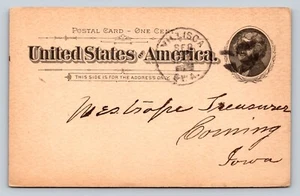 POSTAL CARD - ONE CENT
United States of America.
THIS SIDE IS FOR THE ADDRESS ONLY
VILLISCA
SEP
Treasurer
Corning
Iowa